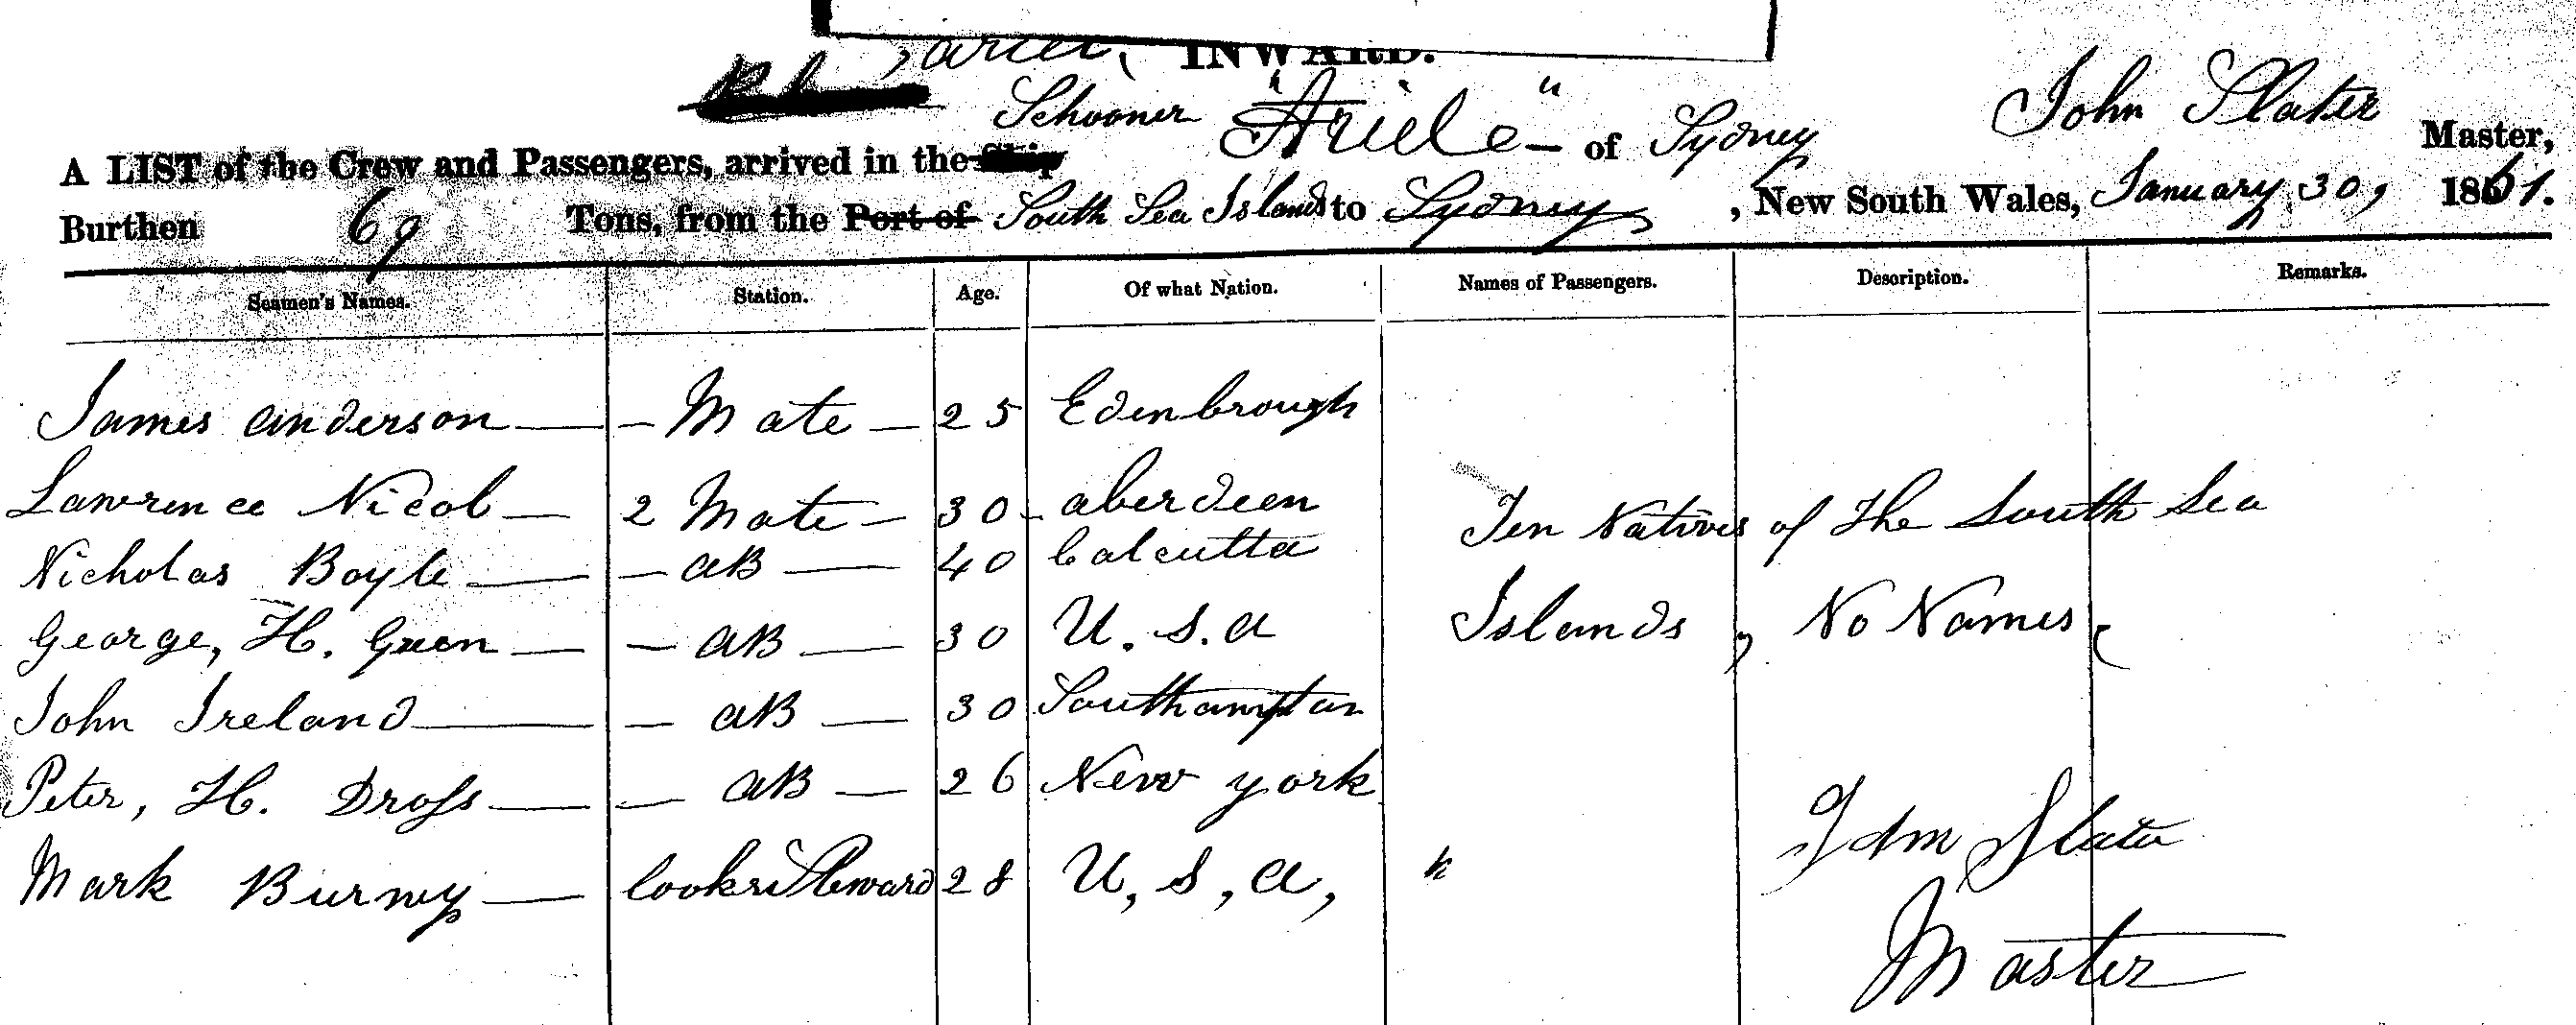 INWARD.
Schooner "Ariel" of Sydney John Slater Master,
A LIST of the Crew and Passengers, arrived in the Ship
Burthen 69 Tons, from the Port of South Sea Islands to Sydney, New South Wales, January 30, 1861.
Seamen's Names. Station. Age. Of what Nation. Names of Passengers. Description. Remarks.
James Anderson — Mate — 25 Edenbrough
Lawrence Nicol — 2 Mate — 30 - aberdeen
Nicholas Boyle — AB — 40 Calcutta
George, H. Green — AB — 30 U.S.a
John Ireland — AB — 30 Southampton
Peter, H. Dross — AB — 26 New york
Mark Burney — Cook & Steward 28 U,S,a,
Ten Natives of The South Sea
Islands, No Names
Jdm Slater
Master